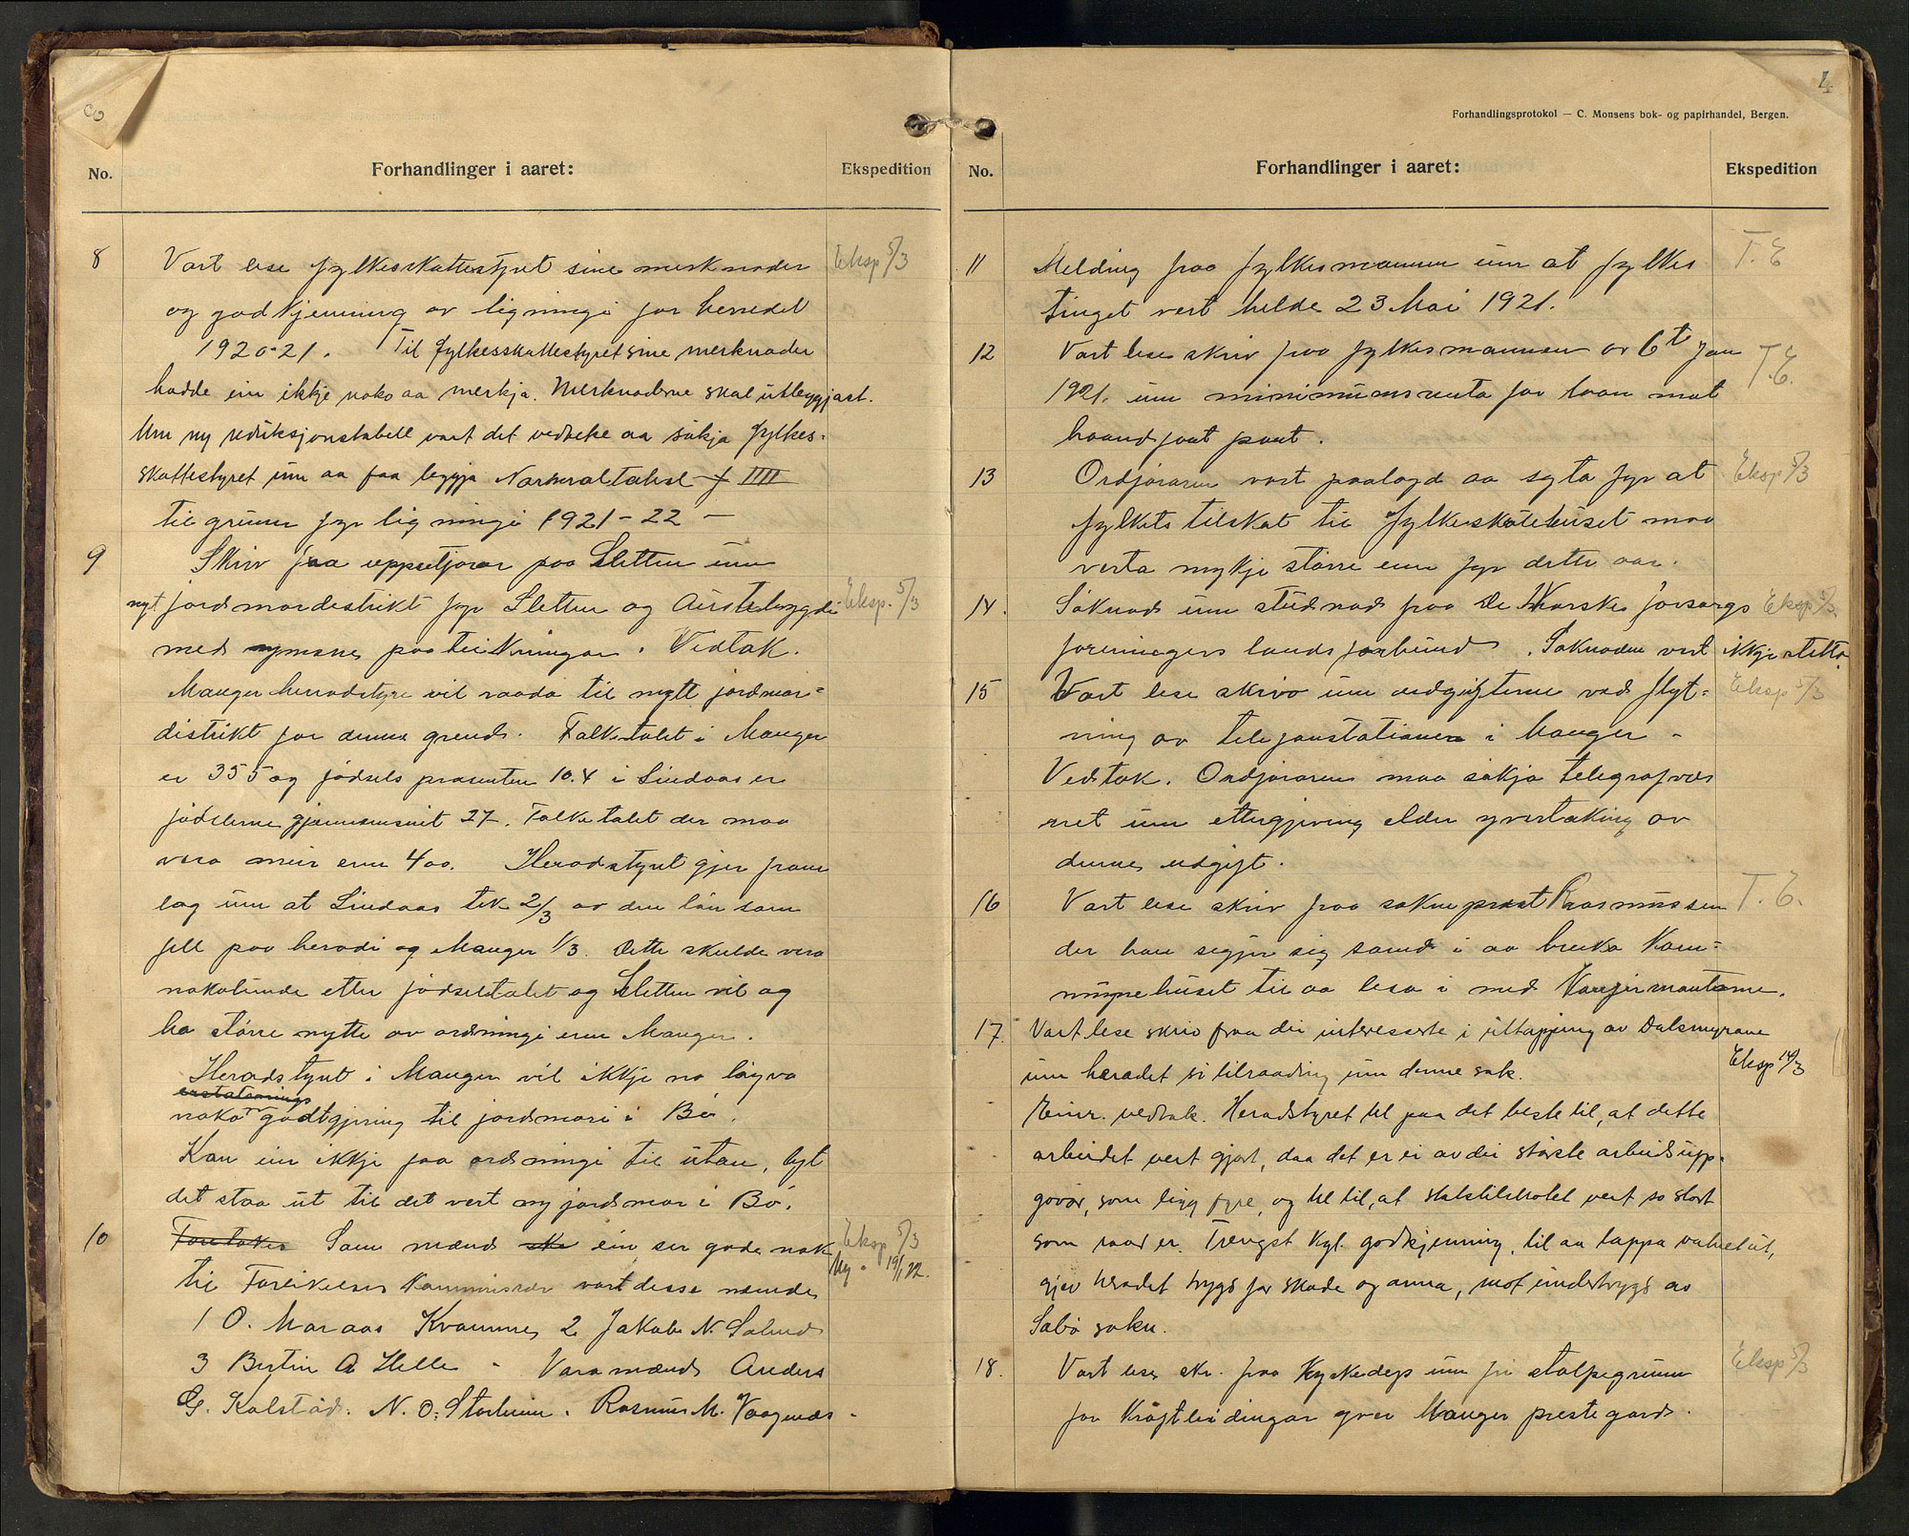 No.
Forhandlinger i aaret:
Ekspedition
8
Vart lese fylkesskattestyret sine merknader
Eksp 5/3
og godkjenning av ligningi for herredet
1920-21. Til fylkesskattestyret sine merknader
hadde ein ikkje noko aa merkja. Merknaderne skal utleggjast.
Um ny reduksjonstabell vart det vedteke aa søkja fylkes-
skattestyret um aa faa leggja Normaltabel f IIII
til grunn fyr ligningi 1921-22 -
9
Skriv fraa uppsitjarar paa Sletten um
nyt jordmordistrikt fyr Sletten og Austebygdi
Eksp. 5/3
med paateikningar. Vedtak.
Manger heradstyre vil raada til nytt jordmor-
distrikt for denne grend. Folketalet i Manger
er 355 og fødsels prosenten 10.4 i Lindaas er
fødslerne gjennemsnit 27. Folketalet der maa
vera meir enn 400. Heradstyret gjer fram
lag um at Lindaas tek 2/3 av den løn som
fell paa heradi og Manger 1/3. Dette skulde vera
nokolunde etter fødselstalet og Sletten vil og
ha større nytte av ordningi enn Manger.
Heradstyret i Manger vil ikkje no løyva
erstatnings
noko godtgjering til jordmori i Bø.
Kan ein ikkje faa ordningi til utan, lyt
det staa ut til det vert ny jordmor i Bø.
10
Som mænd ein ser gode nok
Eksp 5/3
til Forlikelses Kommissær vart desse nemde
Ny - 19/1 22.
1 O. Maraas Kvamme, 2 Jakob N. Solend
3 Bertin A Helle - Varamænd Anders
G. Kolstad. N. O. Storheim. Rasmus M. Vaagenes -
4
Forhandlingsprotokol — C. Monsens bok- og papirhandel, Bergen.
No.
Forhandlinger i aaret:
Ekspedition
11
Melding fraa fylkesmannen um at fylkes
T. E
tinget vert helde 23 Mai 1921.
12
Vart lese skriv fraa fylkesmannen av 6t Jan
T.E.
1921. um minimumsrenta for laan mot
haandfaat pant.
13
Ordføraren vart paalagd aa syta fyr at
Eksp 5/3
fylkets tilskot til fylkesskulehuset maa
verta mykje større enn fyr dette aar.
14.
Søknad um studnad fraa De Norske forsorgs
Eksp 5/3
foreningers landsforbund. Søknaden vert ikkje støtta.
15
Vart lese skrivo um udgifterne ved flyt-
Eksp 5/3
ning av telefonstationen i Manger -
Vedtak. Ordføraren maa søkja telegrafvæs
net um ettergjeving elder yvertaking av
denne udgift.
16
Vart lese skriv fraa sokneprest Rasmussen
T. E.
der han segjer sig samd i aa bruka Kom-
munehuset til aa lesa i med Konfirmanterne.
17.
Vart lese skriv fraa dei interesserte i uttapping av Dalsmyrane
um heradet si tilraading um denne sak.
Eksp 14/3
Einr. vedtak. Heradstyret tel paa det beste til, at dette
arbeidet vert gjort, daa det er ei av dei største arbeidsupp-
gavor, som ligg fyre, og tel til, at statstilskotet vert so stort
som raad er. Trengst Kgl. godkjenning, til aa tappa vatnet ut,
gjev heradet trygd for skade og anna, mot undertrygd av
Sæbø sokn.
18.
Vart lese skr. fraa Kyrkedep um fri stolpegrunn
Eksp 5/3
for Kraftleidingar yver Manger prestegard.